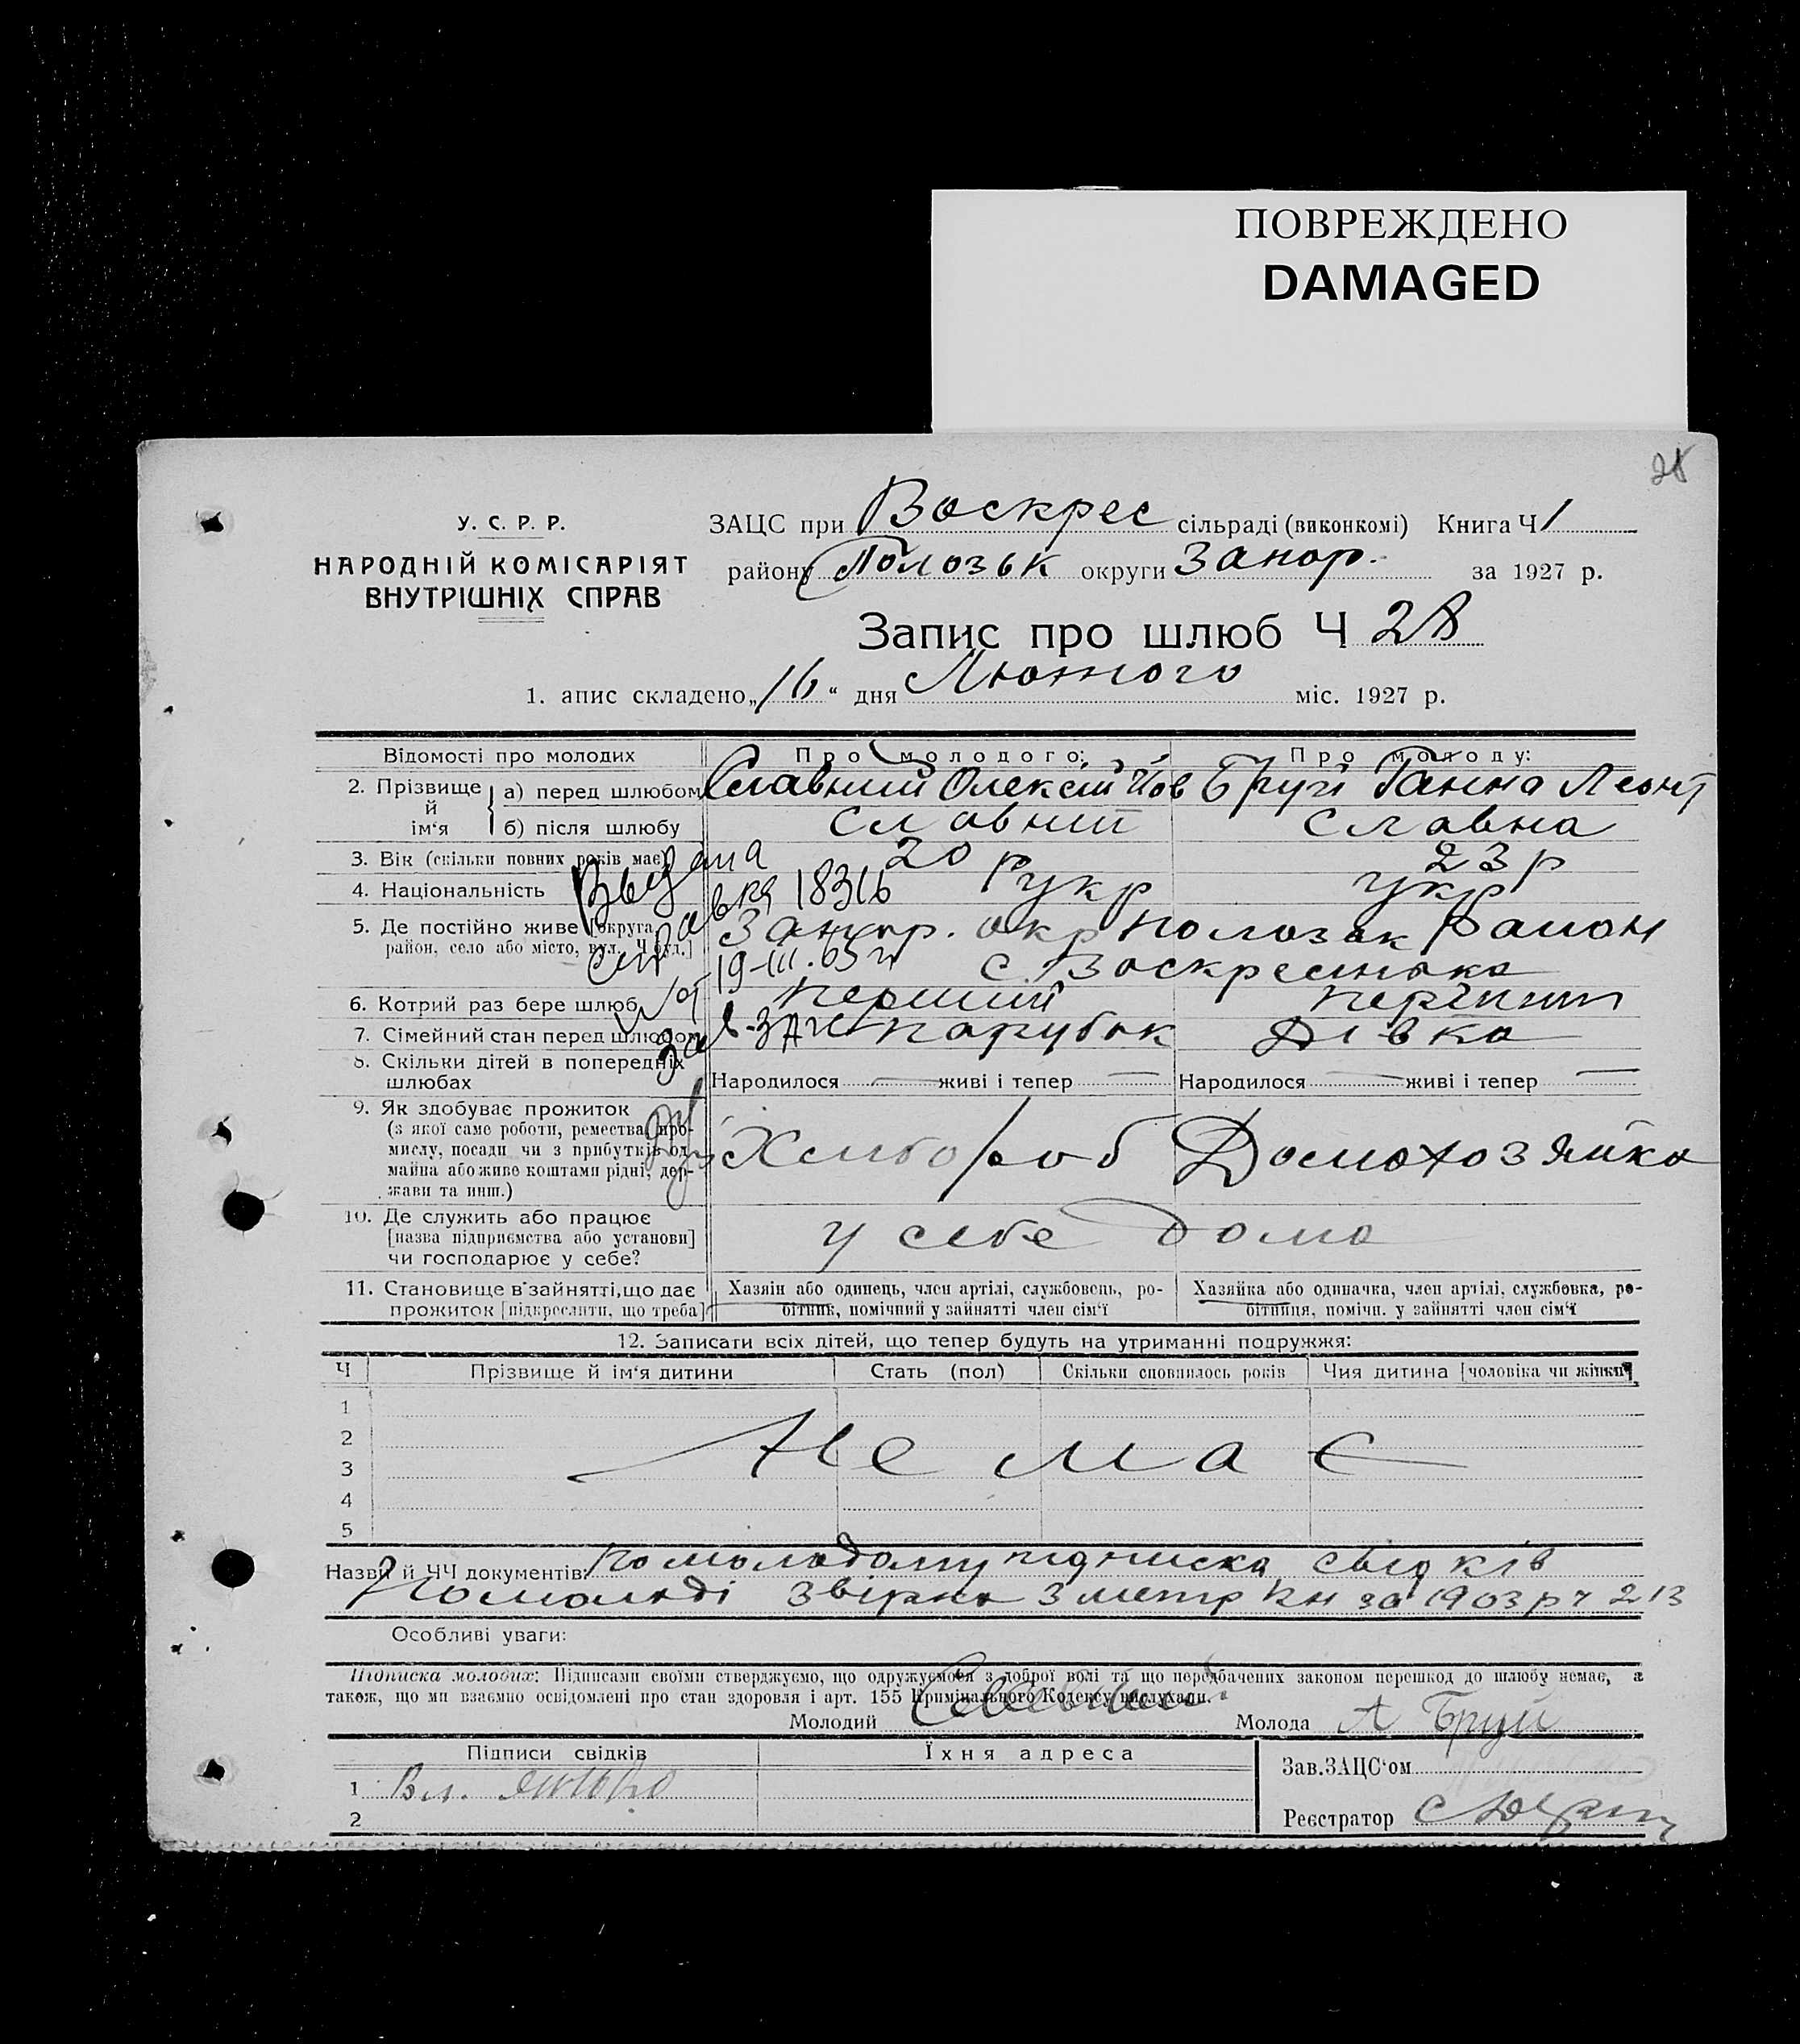 ПОВРЕЖДЕНО
DAMAGED
28
У. С. Р. Р.
НАРОДНІЙ КОМІСАРІЯТ
ВНУТРІШНІХ СПРАВ
ЗАЦС при Воскрес сільраді (виконкомі) Книга Ч 1
району Полозьк округи Запор. за 1927 р.
Запис про шлюб Ч 28
1. апис складено „16“ дня Лютого міс. 1927 р.
Відомості про молодих Про молодого: Про молоду:
2. Прізвище й ім‘я
а) перед шлюбом Славний Олексій Йов Бруй Ганна Леонт
б) після шлюбу Славний Славна
3. Вік (скільки повних років має) 20 р 23 р
4. Національність укр укр
Выдана
справка 18316
19-III.65 г
зав. ЗАГС
5. Де постійно живе [округа, район, село або місто, вул. Ч буд.] Запор. окр Полозьк район
с Воскресенка
6. Котрий раз бере шлюб перший перший
7. Сімейний стан перед шлюбом парубок Дівка
8. Скільки дітей в попередніх
шлюбах Народилося — живі і тепер — Народилося — живі і тепер —
9. Як здобуває прожиток
(з якої саме роботи, ремества, про-
мислу, посади чи з прибутків од
майна або живе коштами рідні, дер-
жави та инш.)
Хлібороб Домохозяйка
10. Де служить або працює
[назва підприємства або установи]
чи господарює у себе?
у себе дома
11. Становище в зайнятті, що дає
прожиток [підкреслити, що треба]
Хазяїн або одинець, член артілі, службовець, ро-
бітник, помічний у зайнятті член сім‘ї
Хазяйка або одиначка, член артілі, службовка, ро-
бітниця, помічн. у зайнятті член сім‘ї
12. Записати всіх дітей, що тепер будуть на утриманні подружжя:
Ч Прізвище й ім‘я дитини Стать (пол) Скільки сповнилось років Чия дитина [чоловіка чи жінки]
1
2
3
4
5
Не має
Назви й ЧЧ документів: по молодому підписка свідків
По молоді звірка з метр кн за 1903 р ч 213
Особливі уваги:
Підписка молодих: Підписами своїми стверджуємо, що одружуємося з доброї волі та що передбачених законом перешкод до шлюбу немає, а
також, що ми взаємно освідомлені про стан здоровля і арт. 155 Кримінального Кодексу вислухали.
Молодий Славний Молода А Бруй
Підписи свідків Їхня адреса
1 Вл.
2
Зав.ЗАЦС‘ом
Реєстратор